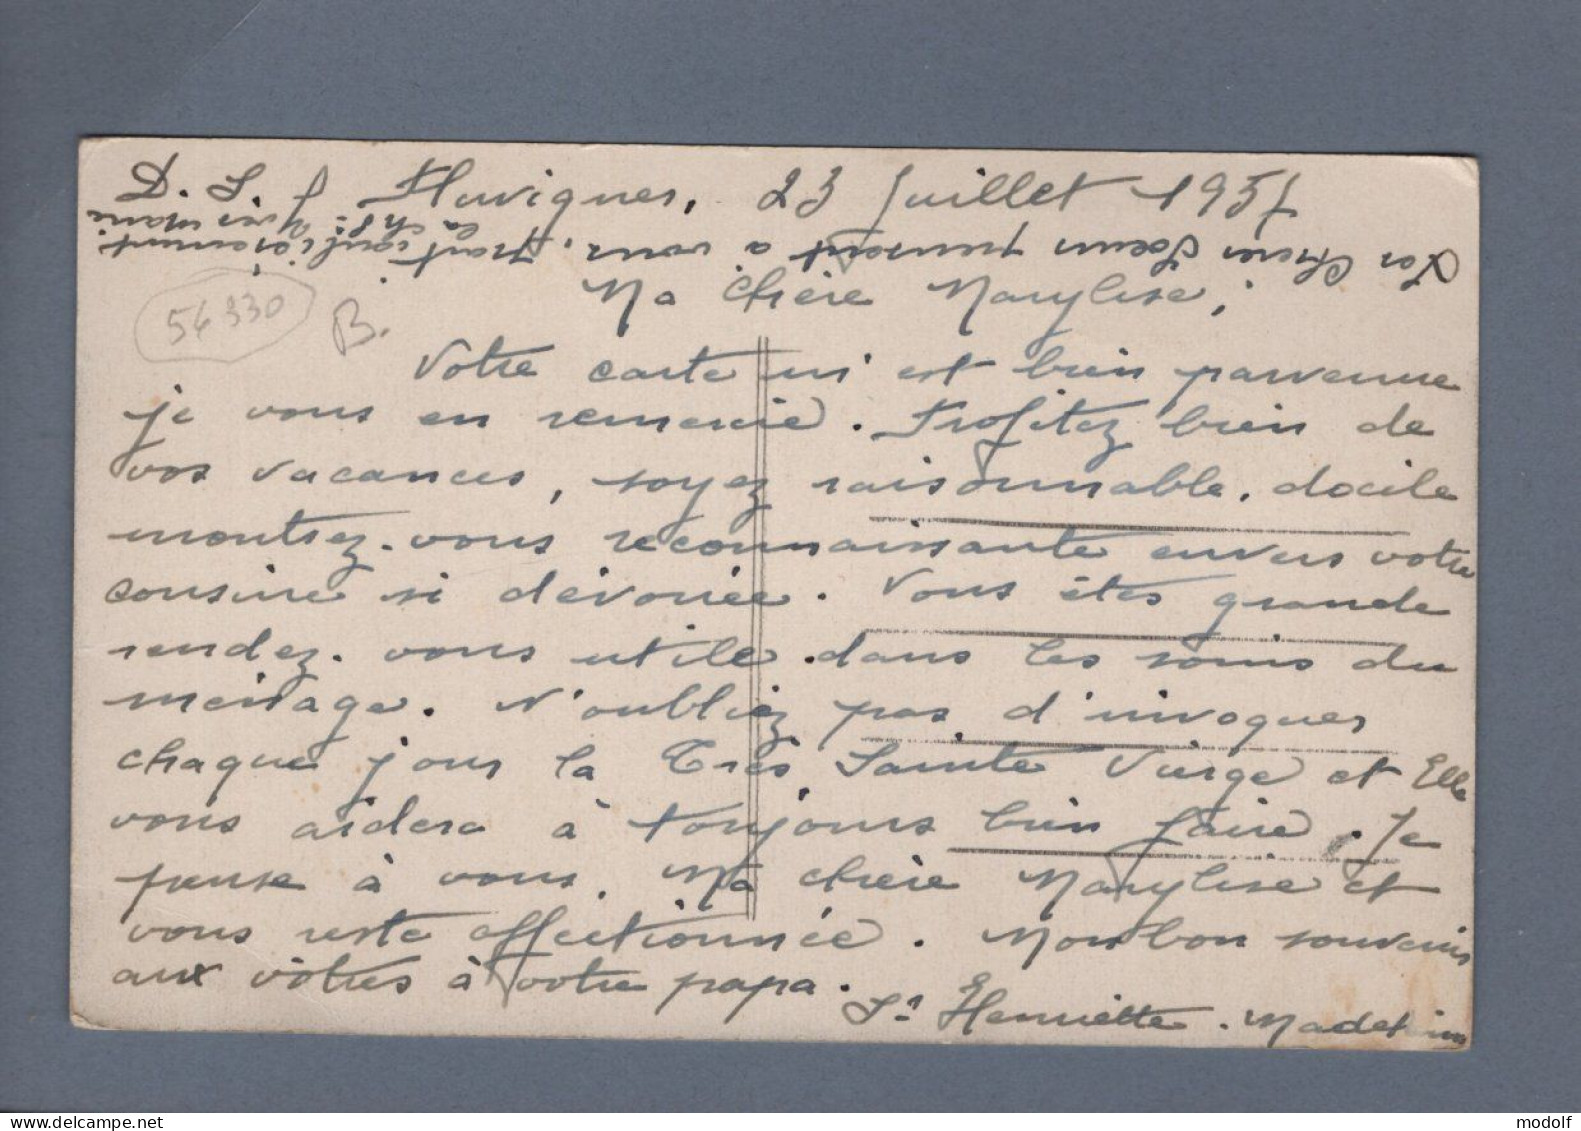 D. S. J Pluvigner, 23 Juillet 1957
Les Chères Soeurs pensent à vous, tout particulièrement
la Ch Sr Yves Marie
56 330
B.
Ma Chère Marylise,
Votre carte m'est bien parvenue
je vous en remercie. Profitez bien de
vos vacances, soyez raisonnable, docile
montrez-vous reconnaissante envers votre
cousine si dévouée. Vous êtes grande
rendez-vous utile dans les soins du
ménage. N'oubliez pas d'invoquer
chaque jour la Très Sainte Vierge et Elle
vous aidera à toujours bien faire. Je
pense à vous, Ma chère Marylise et
vous reste affectionnée. Mon bon souvenir
aux vôtres à votre papa.
Sr Henriette. Madeleine
www.delcampe.net
modolf